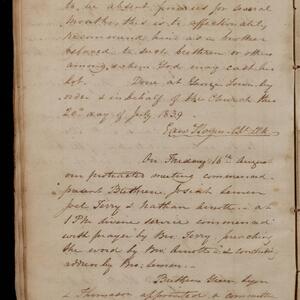 to be absent from us for several
Months, this is to affectionately
recommend him as a brother
beloved to such brethren or others
among whom God may cast his
lot. Done at George Town by
order & in behalf of the Church the
20th day of July 1839
Clk
On Friday 16th Augs
our protracted meeting commenced
present Brethren, Josiah Leman
Joel Terry & Nathan Arnott – at
1 PM divine service commenced
with prayer by Bro. Terry, preaching
the word by Bro Arnott & concluding
address by Bro. Leman.
Brethren
& Thomason appointed a committee